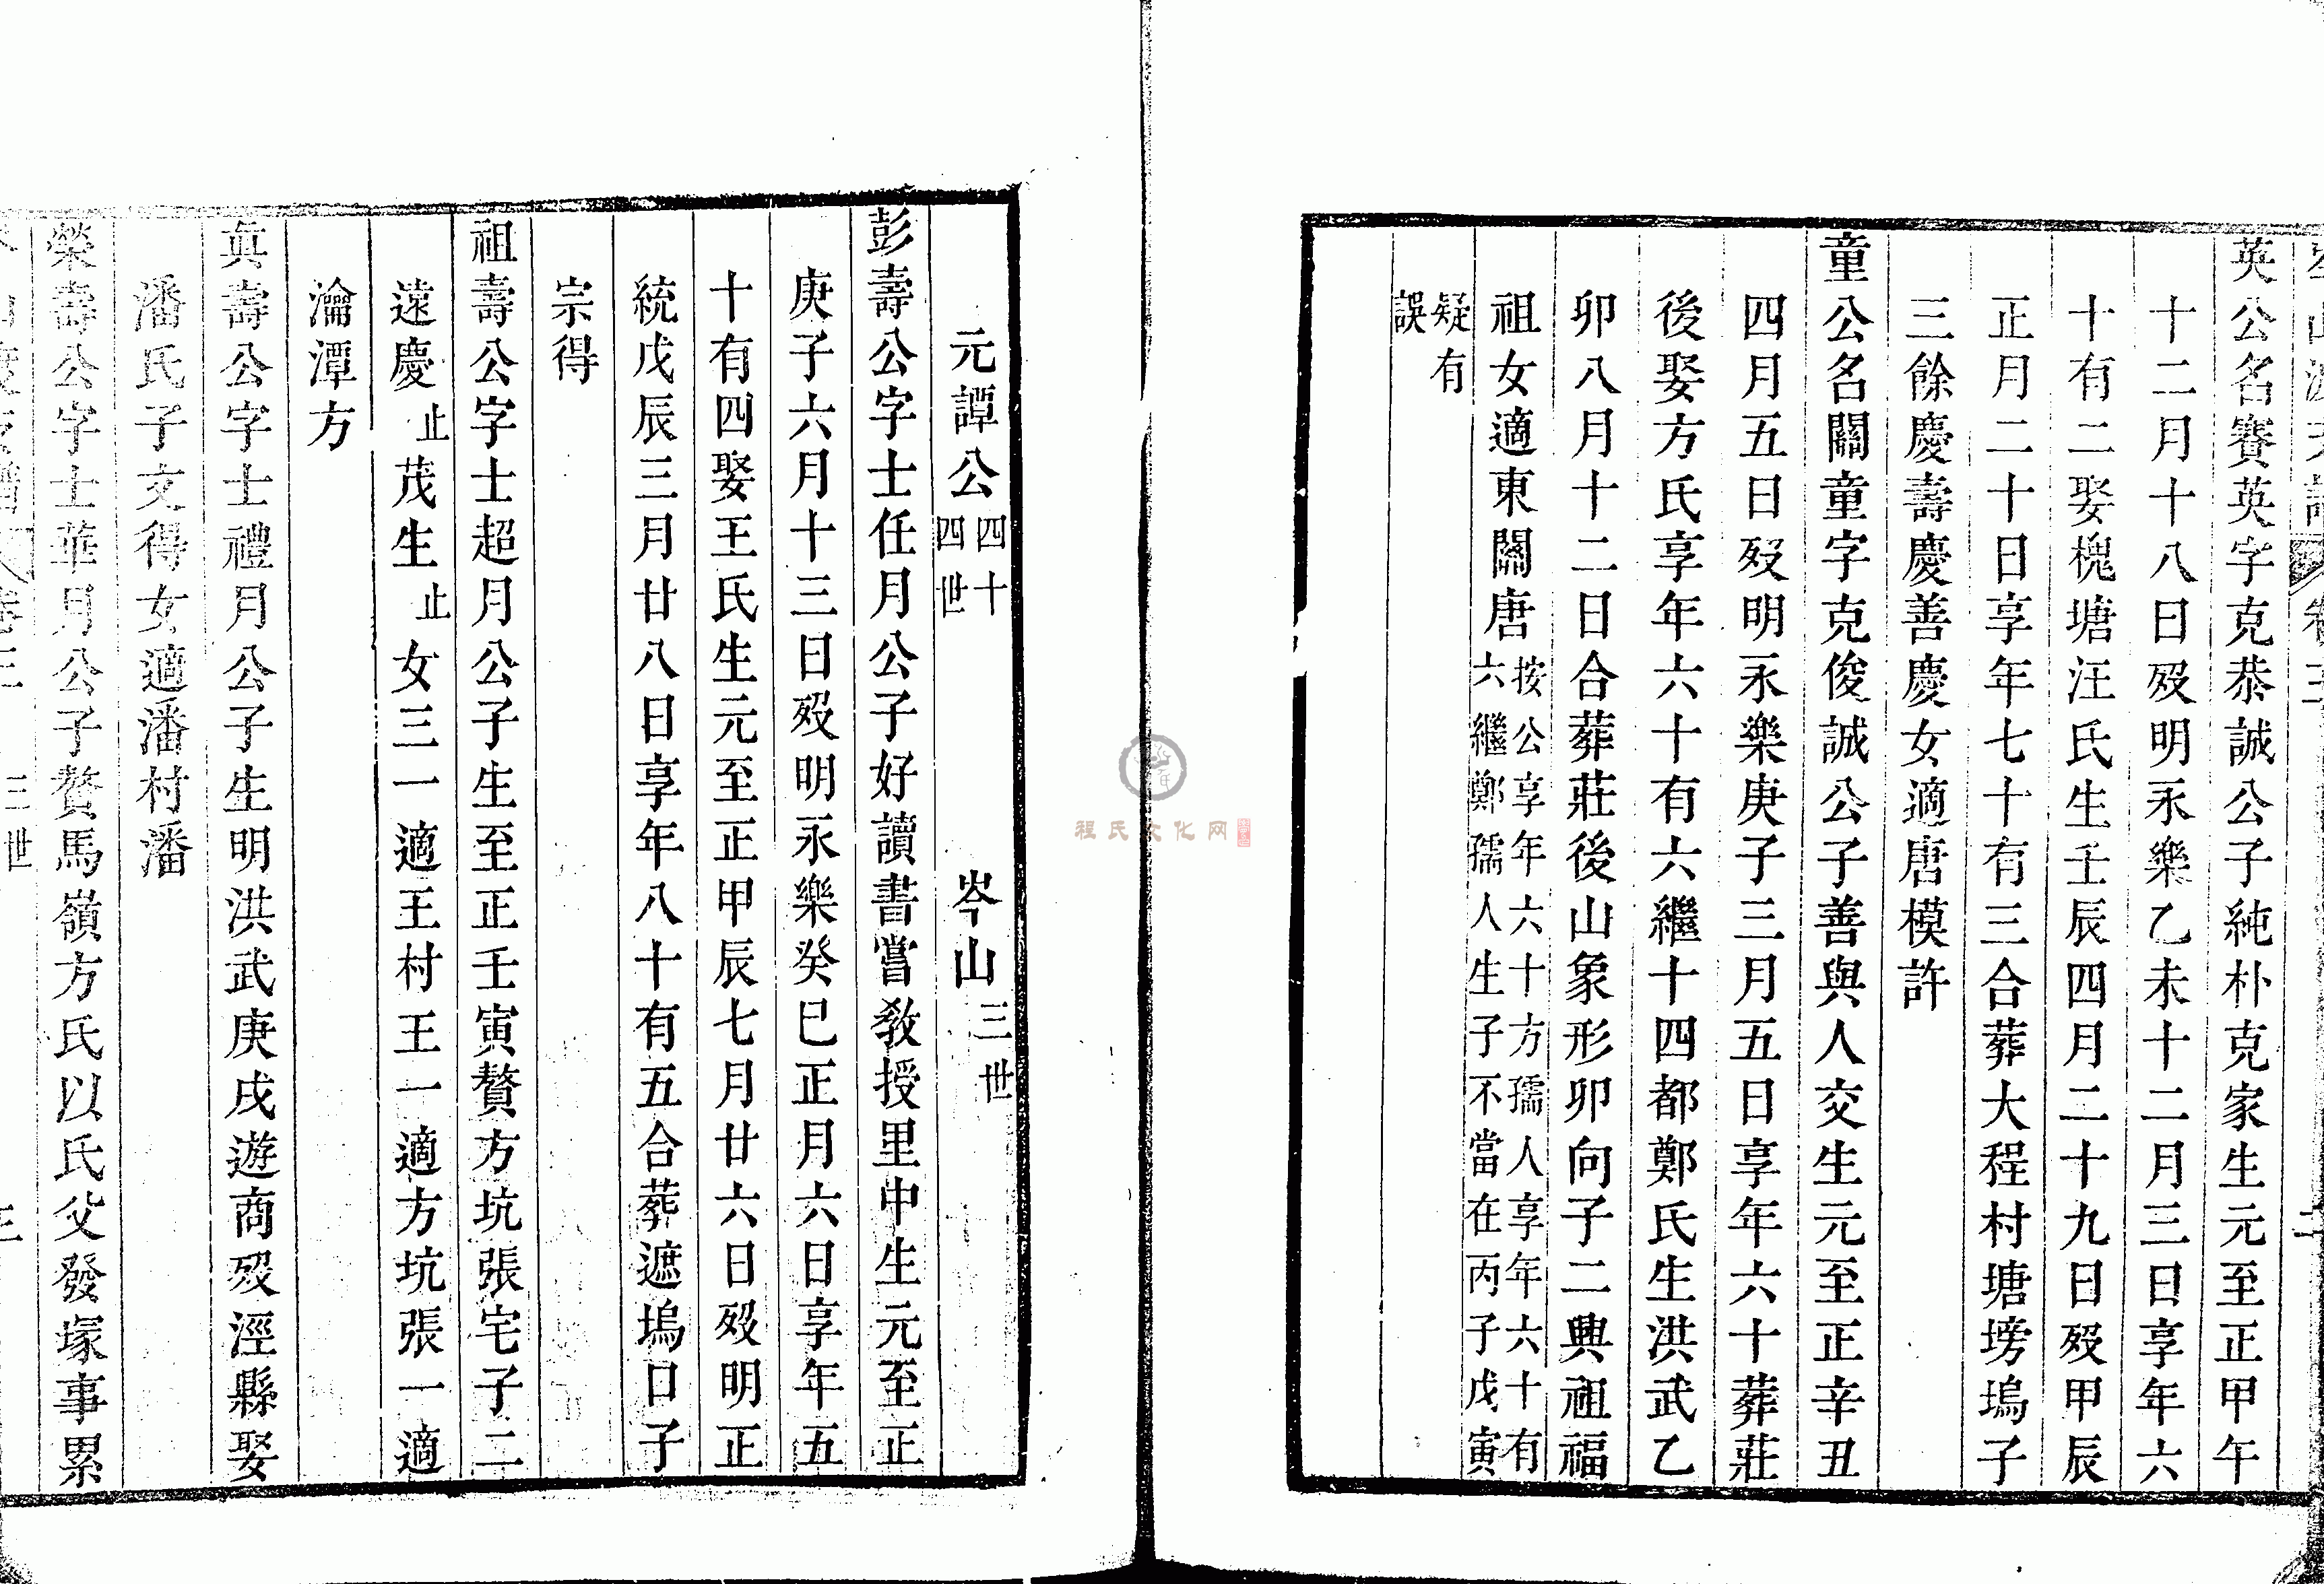 英公名賽英字克恭誠公子純朴克家生元至正甲午
十二月十八日歿明永樂乙未十二月三日享年六
十有二娶槐塘汪氏生壬辰四月二十九日歿甲辰
正月二十日享年七十有三合葬大程村塘塝塢子
三餘慶壽慶善慶女適唐模許
童公名關童字克俊誠公子善與人交生元至正辛丑
四月五日歿明永樂庚子三月五日享年六十葬莊
後娶方氏享年六十有六繼十四都鄭氏生洪武乙
卯八月十二日合葬莊後山象形卯向子二興祖福
祖女適東關唐按公享年六十方孺人享年六十有
六繼鄭孺人生子不當在丙子戊寅
疑有
誤
元譚公四十四世 岑山三世
彭壽公字士任月公子好讀書嘗教授里中生元至正
庚子六月十三日歿明永樂癸巳正月六日享年五
十有四娶王氏生元至正甲辰七月廿六日歿明正
統戊辰三月廿八日享年八十有五合葬遮塢口子
宗得
祖壽公字士超月公子生至正壬寅贅方坑張宅子二
遠慶止茂生止女三一適王村王一適方坑張一適
瀹潭方
真壽公字士禮月公子生明洪武庚戌遊商歿涇縣娶
潘氏子文得女適潘村潘
榮壽公字士華月公子贅馬嶺方氏以氏父發塚事累
三世
程氏文化网